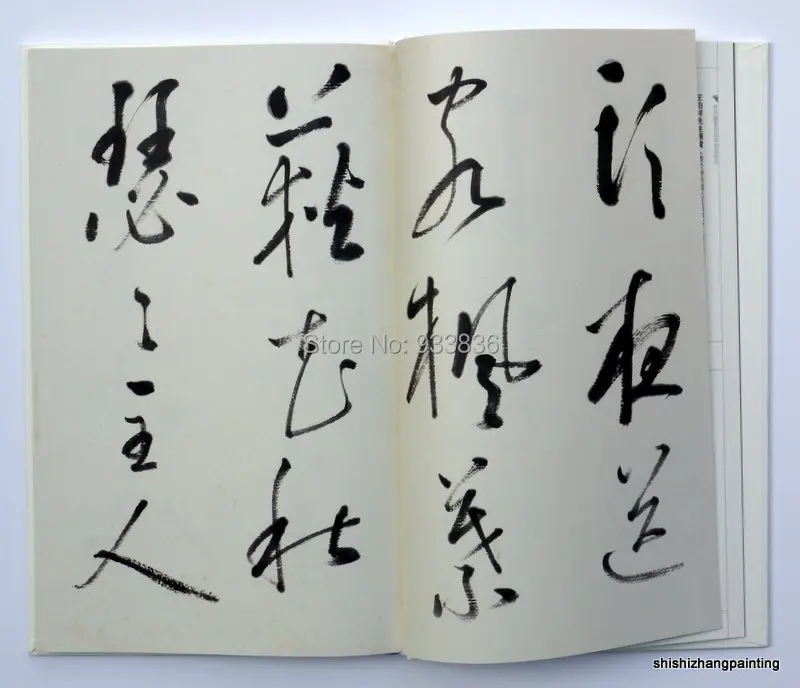 頭夜送
客楓葉
荻花秋
瑟々主人
Store No: 933836
shishizhangpainting